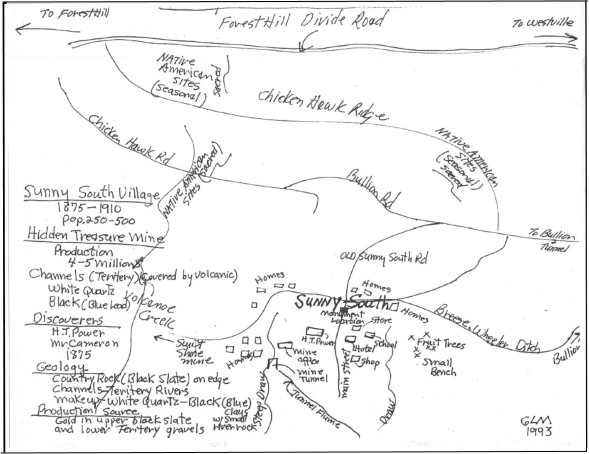 To Foresthill
ForestHill Divide Road
To Westville
NATIVE
American
Sites
(seasonal)
sacred
Chicken Hawk Ridge
NATIVE American
Sites
(seasonal)
sacred
Chicken Hawk Rd
NATIVE American
Sites (sacred)
Bullion Rd
To Bullion
Tunnel
OLD Sunny South Rd
Sunny South Village
1875-1910
Pop. 250-500
Hidden Treasure Mine
Production
4-5 million
Channels (Teritery) (Covered by Volcanic)
White Quartz
Black (Blue Lead)
Discoverers
H.T. Power
Mr. Cameron
1875
Geology
Country Rock (Black Slate) on edge
Channels-Teritery Rivers
makeup-White Quartz-Black (Blue)
Clays
w/small
River rock
Production Source
Gold in upper black slate
and lower Teritery gravels
Volcanoe
Creek
Homes
Homes
Sunny South
Homes
monument
Location
Store
H.T. Power
School
Hotel
Shop
mine
office
mine
Tunnel
main street
Homes
Mine
Tunnel Flume
Draw
Fruit Trees
Small
Bench
Breece Wheeler Ditch
Bullion
GLM
1993